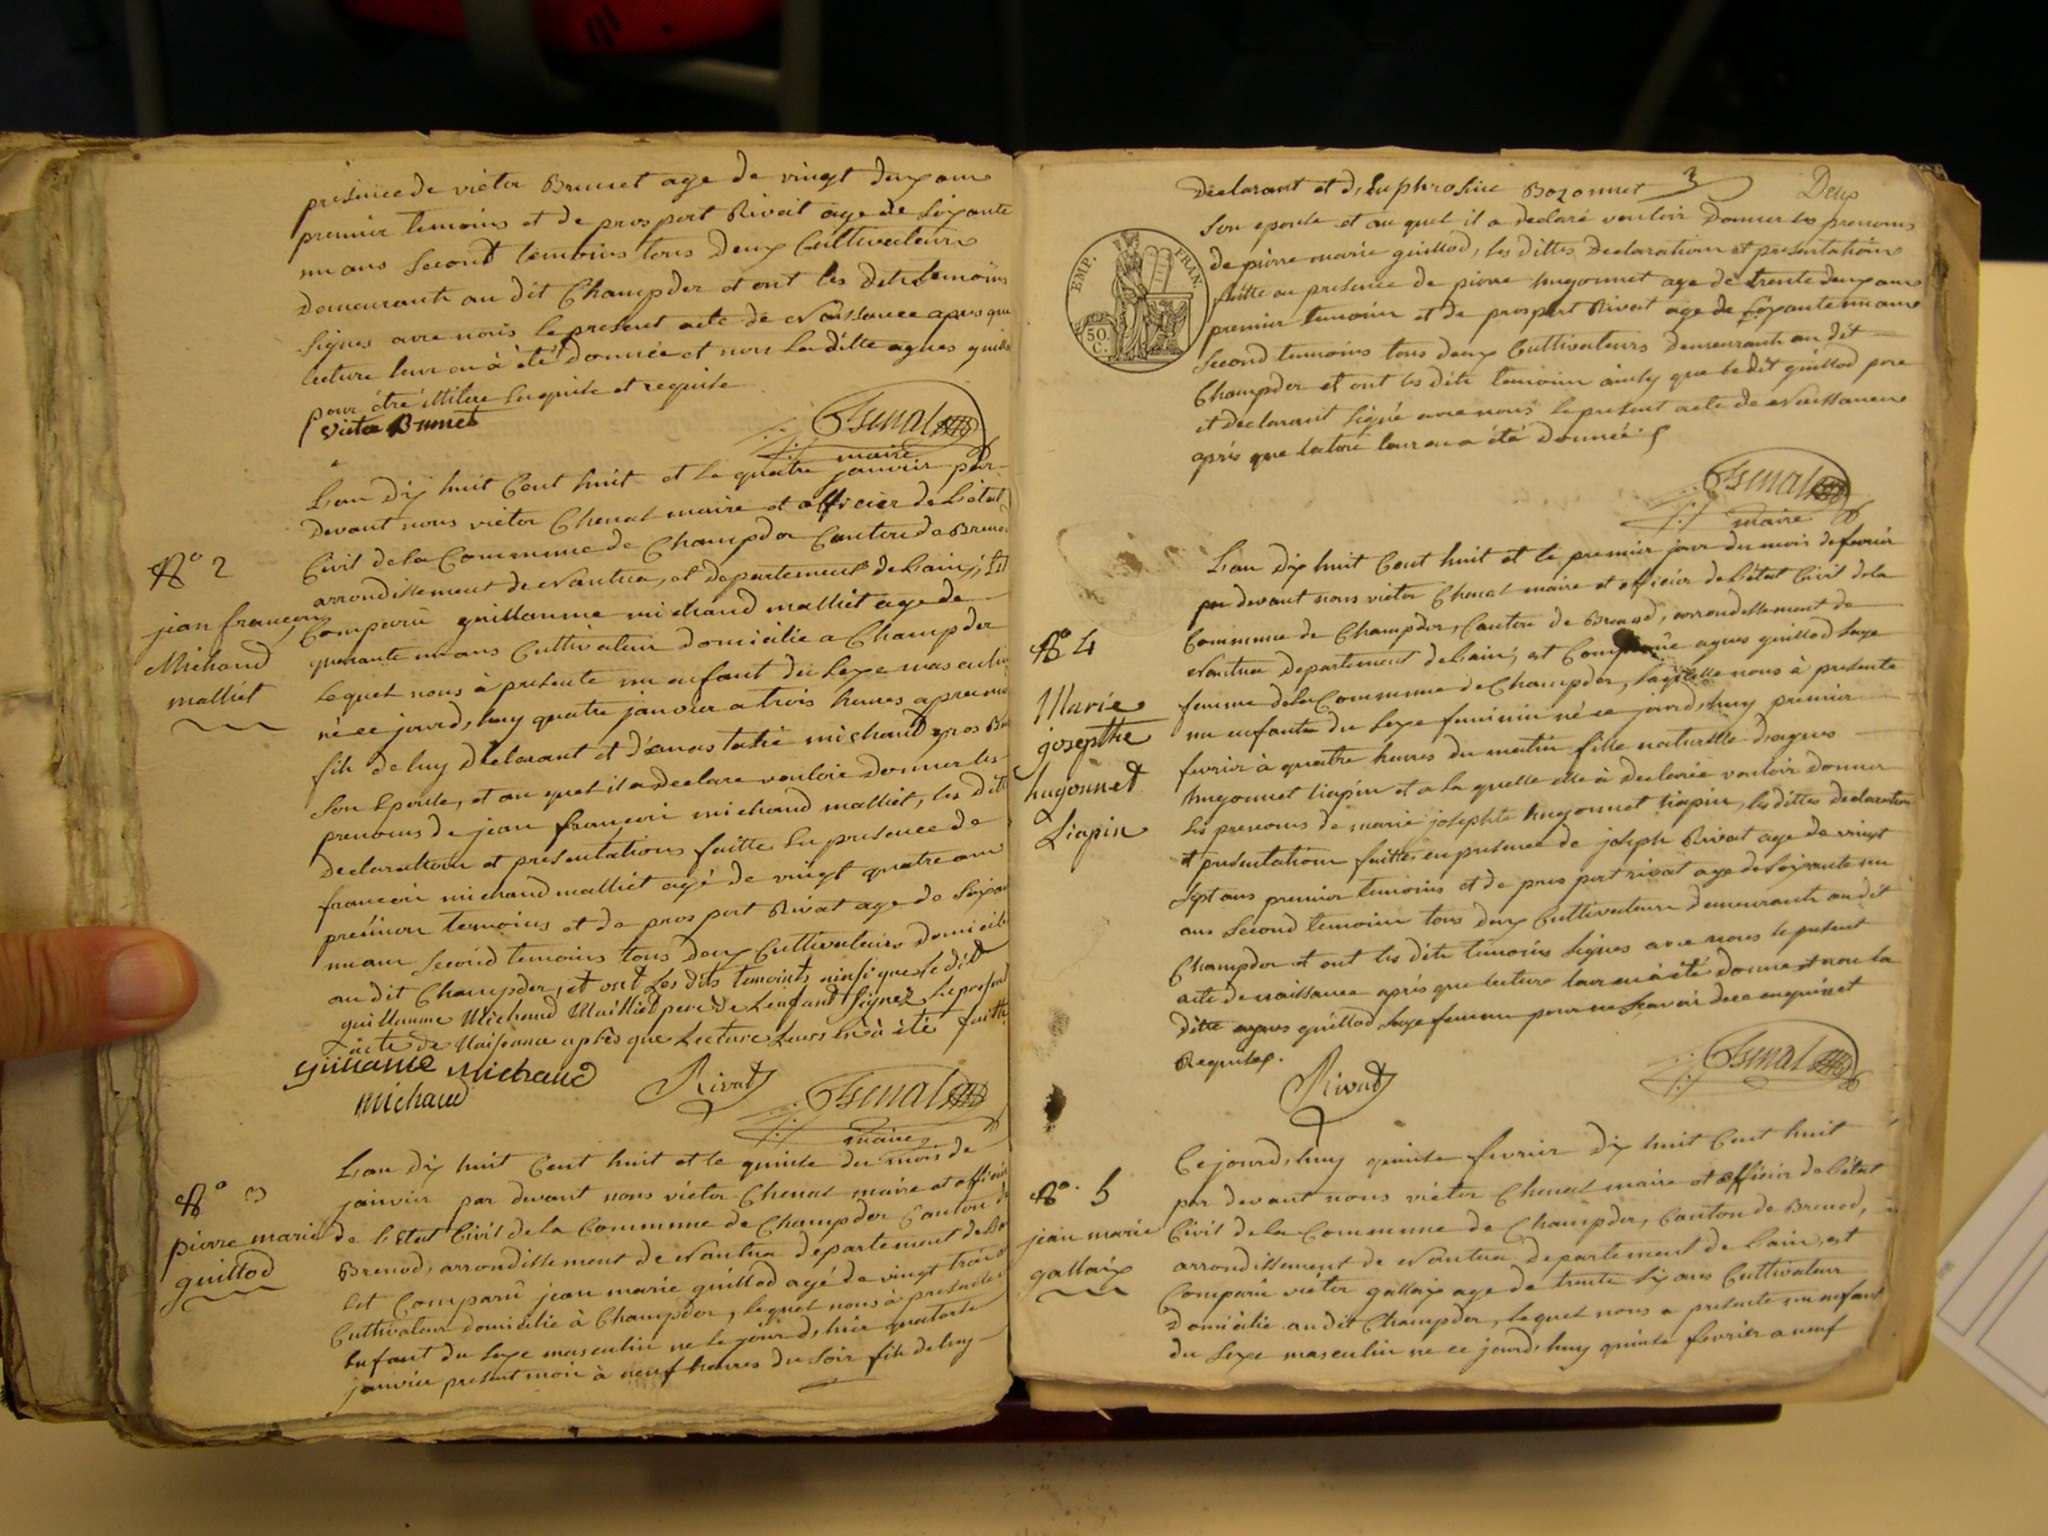 presence de victor Brunet age de vingt deux ans
premier temoins et de prosport Rivait age de soixante
un ans second temoins tous deux Cultivateurs
demeurants au dit Champdor et ont les dits temoins
signes avec nous le present acte de Naissance apres que
lecture leur en à été donnée et non la ditte agnes
pour être illitere Enquise et requise
victor Brunet
Chenal
maire
L'an dix huit Cent huit et le quatre janvier par
devant nous victor Chenal maire et officier de L'état
Civil de la Commune de Champdor Canton de Brenod
arrondissement de Nantua, et departement de L'ain, Est
N° 2
jean francois
Michaud
malliet
Comparu guillaume michaud malliet age de
quarante un ans Cultivateur domicilie a Champdor
lequel nous à presente un enfant du sexe masculin
né ce jourd,huy quatre janvier a trois heures apres mi
fils de luy declarant et d'anastasie michaud
Son Epouse, et au quel il a declare vouloir donner les
prenoms de jean francois michaud malliet, les dits
declaration et presentations faitte En presence de
francois michaud malliet agé de vingt quatre ans
premier temoins et de prosport Rivat age de soixante
un ans second temoins tous deux Cultivateurs domicilie
au dit Champdor, et ont Les dits temoints ainsi que le dit
guillaume Michaud Mailliet pere de L'enfant Signéz Le present
acte de Naissance aprês que Lecture Leurs En à été faitte
guillaume Michaud
michaud
Rivat
Chenal
maire
L'an dix huit Cent huit et le quinze du mois de
janvier par devant nous victor Chenal maire et officier
N° 3
pierre marie
guillod
de L'Etat Civil de la Commune de Champdor Canton de
Brenod, arrondissement de Nantua departement de
Est Comparu jean marie guillod agé de vingt trois
Cultivateur domicilie à Champdor, lequel nous à presenté
Enfant du sexe masculin ne le jour d,hier quatorze
janvier present mois à neuf heures du soir fils de luy
3
Deux
declarant et d,Euphrosine Bozonnet
Son epouse et au quel il a declaré vouloir donner les prenoms
EMP. FRAN.
50 C.
de pierre marie guillod, les dittes declaration et presentation
faitte en presence de pierre hugonnet age de trente deux ans
premier temoins et de prosport Rivat age de soixante un ans
second temoins tous deux Cultivateurs demeurants au dit
Champdor et ont les dits temoins ainsy que le dit guillod pere
et declarant signé avec nous le present acte de Naissance
après que lature leur en a été donnée
Chenal
maire
L'an dix huit Cent huit et le premier jour du mois de fevrier
par devant nous victor Chenal maire et officier de L'état Civil de la
Commune de Champdor, Canton de Brenod, arrondissement de
Nantua departement de L'ain, est Comparue agnes guillod sage
N° 4
Marie
josepthe
hugonnet
Liapin
femme de la Commune de Champdor, laquelle nous à presente
un enfante du sexe feminin né ce jourd,huy premier
fevrier à quatre heures du matin fille naturelle d'agnes
hugonnet liapin et a la quelle elle à declarée vouloir donner
les prenoms de marie josephte hugonnet liapin, les dittes declaration
et presentation faitte en presence de joseph Rivat age de vingt
sept ans premier temoins et de prosport rivat age de soixante un
ans second temoins tous deux Cultivateurs demeurants au dit
Champdor et ont les dits temoins signes avec nous le present
acte de naissance après que lecture leur en à été donne et non la
ditte agnes guillod sage femme pour ne scavoir de ce enquise et
Requise.
Rivat
Chenal
Ce jourd,huy quinze fevrier dix huit Cent huit
par devant nous victor Chenal maire et officier de L'état
N° 5
jean marie
gallaix
Civil de la Commune de Champdor, Canton de Brenod,
arrondissement de Nantua departement de L'ain, est
Comparu victor gallaix age de trente six ans Cultivateur
domicilie au dit Champdor, lequel nous a presente un enfant
du sexe masculin ne ce jourd,huy quinze fevrier a neuf